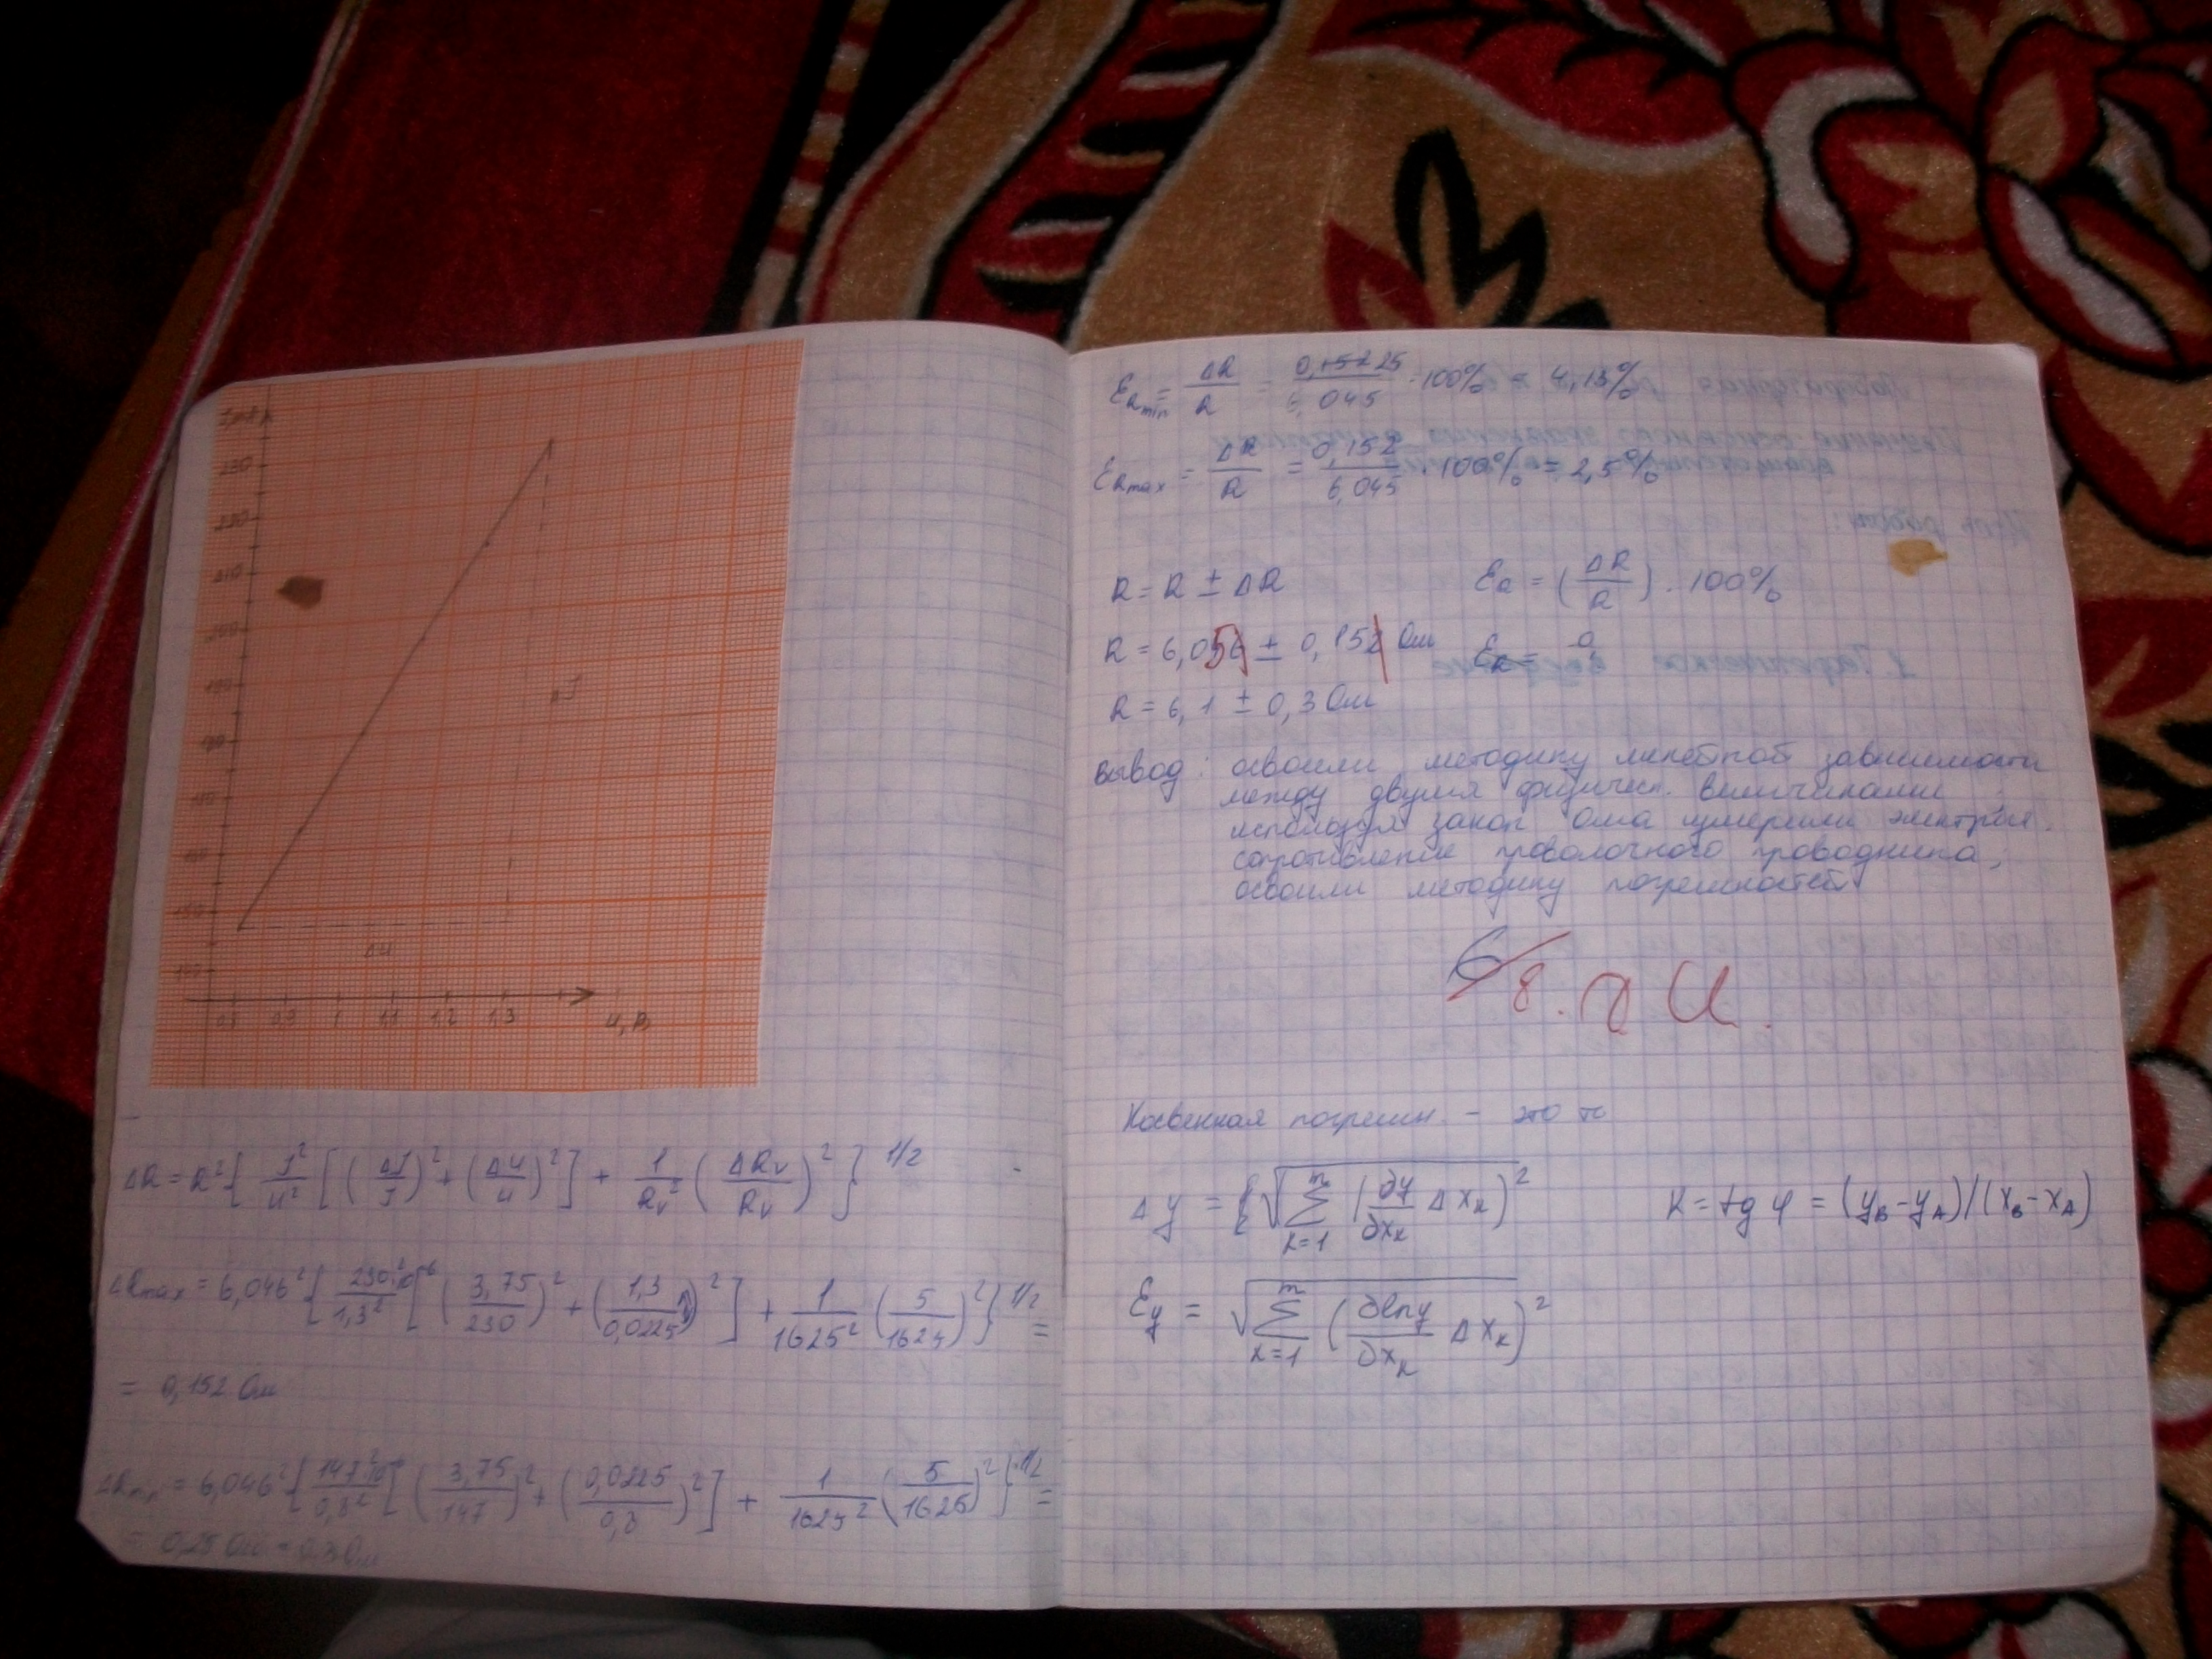 230
220
210
200
190
180
150
140
ΔU
1
1,1
1,2
1,3
U, В
ΔR = R² { J²/U² [ (ΔJ/J)² + (ΔU/U)² ] + 1/Rv² (ΔRv/Rv)² } 1/2
ΔRmax = 6,046² { 230²·10⁻⁶/1,3² [ (3,75/230)² + (1,3/0,0225)² ] + 1/1625² (5/1625)² } 1/2 =
= 0,152 Ом
ΔRmin = 6,046² { 147²·10⁻⁶/0,8² [ (3,75/147)² + (0,0225/0,8)² ] + 1/1625² (5/1625)² } 1/2 =
0,25 Ом = 0,3 Ом
ƐRmin = ΔR/R = 0,25/6,045 · 100% = 4,13%
ƐRmax = ΔR/R = 0,152/6,045 · 100% = 2,5%
R = R ± ΔR ƐR = (ΔR/R) · 100%
R = 6,05 ± 0,15 Ом ƐR = 0
R = 6,1 ± 0,3 Ом
Вывод: освоили методику линейной зависимости
между двумя физическ. величинами
используя закон Ома измерили электрич.
сопротивление проволочного проводника,
освоили методику погрешностей
Косвенная погрешн. – это то
Δy = { √ m Σ k=1 (∂y/∂xk Δxk)² K = tg φ = (yB - yA)/(xB - xA)
Ɛy = √ m Σ k=1 (∂lny/∂xk Δxk)²